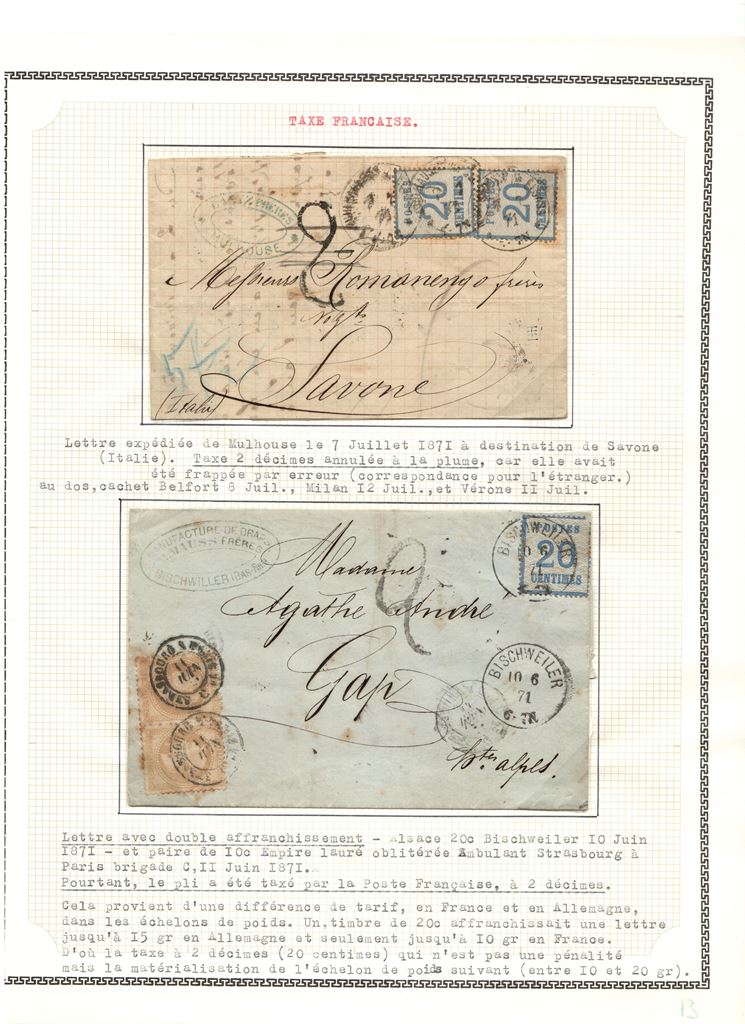 TAXE FRANCAISE.
MULHOUSE
POSTES 20 CENTIMES
POSTES 20 CENTIMES
2
Messieurs Romanengo frères
Négts
Savone
(Italie)
Lettre expédiée de Mulhouse le 7 Juillet I87I à destination de Savone
(Italie). Taxe 2 décimes annulée à la plume, car elle avait
été frappée par erreur (correspondance pour l'étranger.)
au dos,cachet Belfort 8 Juil., Milan I2 Juil.,et Vérone II Juil.
MANUFACTURE DE DRAPS
FRÈRES
BISCHWILLER (BAS-RHIN)
BISCHWEILER
10 6
POSTES
20
CENTIMES
2
Madame
Agathe André
Gap
Htes alpes.
BISCHWEILER
10 6
71
6-7N
11
JUIN
11
JUIN
Lettre avec double affranchissement - Alsace 20c Bischweiler I0 Juin
I87I - et paire de I0c Empire lauré oblitérée Ambulant Strasbourg à
Paris brigade C,II Juin I87I.
Pourtant, le pli a été taxé par la Poste Française, à 2 décimes.
Cela provient d'une différence de tarif, en France et en Allemagne,
dans les échelons de poids. Un,timbre de 20c affranchissait une lettre
jusqu'à I5 gr en Allemagne et seulement jusqu'à I0 gr en France.
D'où la taxe à 2 décimes (20 centimes) qui n'est pas une pénalité
mais la matérialisation de l'échelon de poids suivant (entre I0 et 20 gr).
13